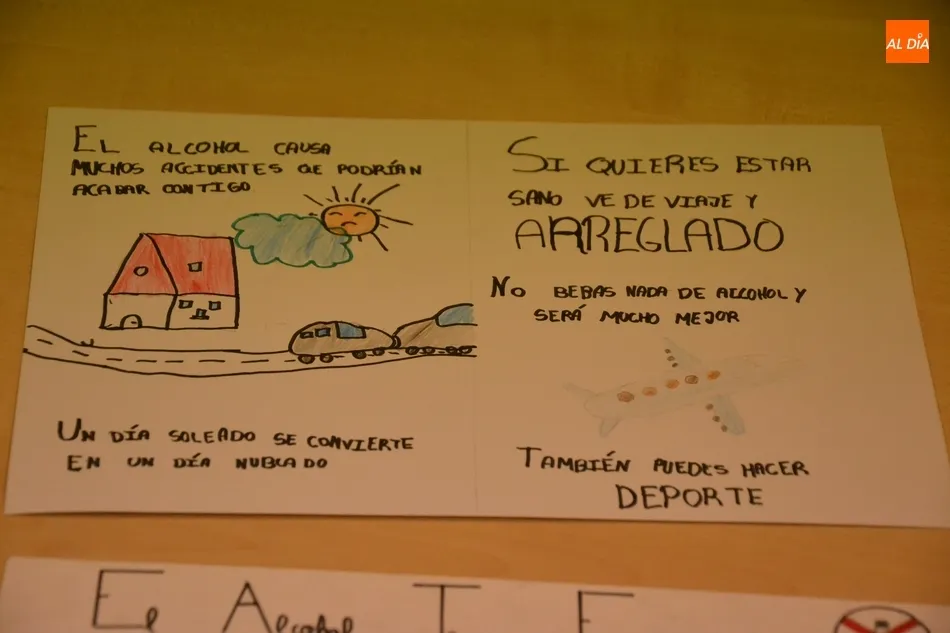 AL DÍA
EL ALCOHOL CAUSA
MUCHOS ACCIDENTES QE PODRÍAN
ACABAR CONTIGO
UN DÍA SOLEADO SE CONVIERTE
EN UN DÍA NUBLADO
SI QUIERES ESTAR
SANO VE DE VIAJE Y
ARREGLADO
NO BEBAS NADA DE ALCOHOL Y
SERÁ MUCHO MEJOR
TAMBIÉN PUEDES HACER
DEPORTE
El Alcohol